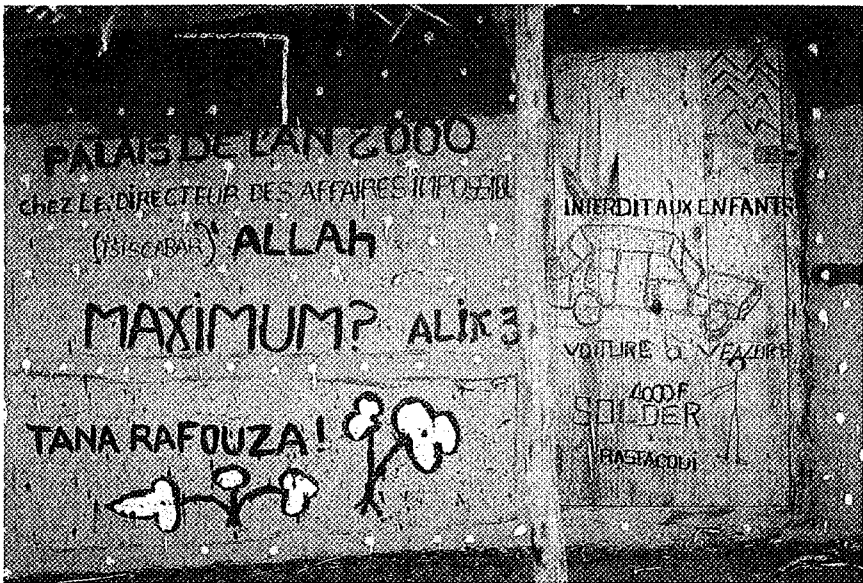 PALAIS DE L'AN 2000
chez LE DIRECTEUR DES AFFAIRES IMPOSSIBL
ALLAh
MAXIMUM? ALIK 3
TANA RAFOUZA!
INTERDIT AUX ENFANTS
VOITURE
4000F
SOLDER